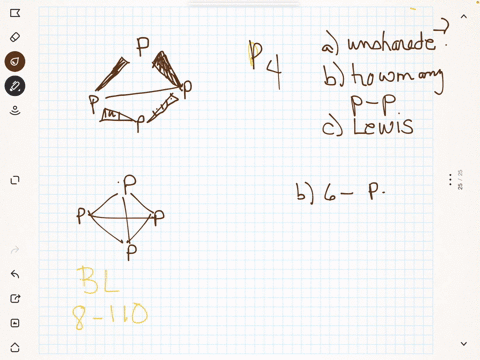 P
P P
P
P4
a) unsharade?
b) how many
P-P
c) Lewis
P
P P
P
b) 6 - P.
BL
8-110
25 / 25